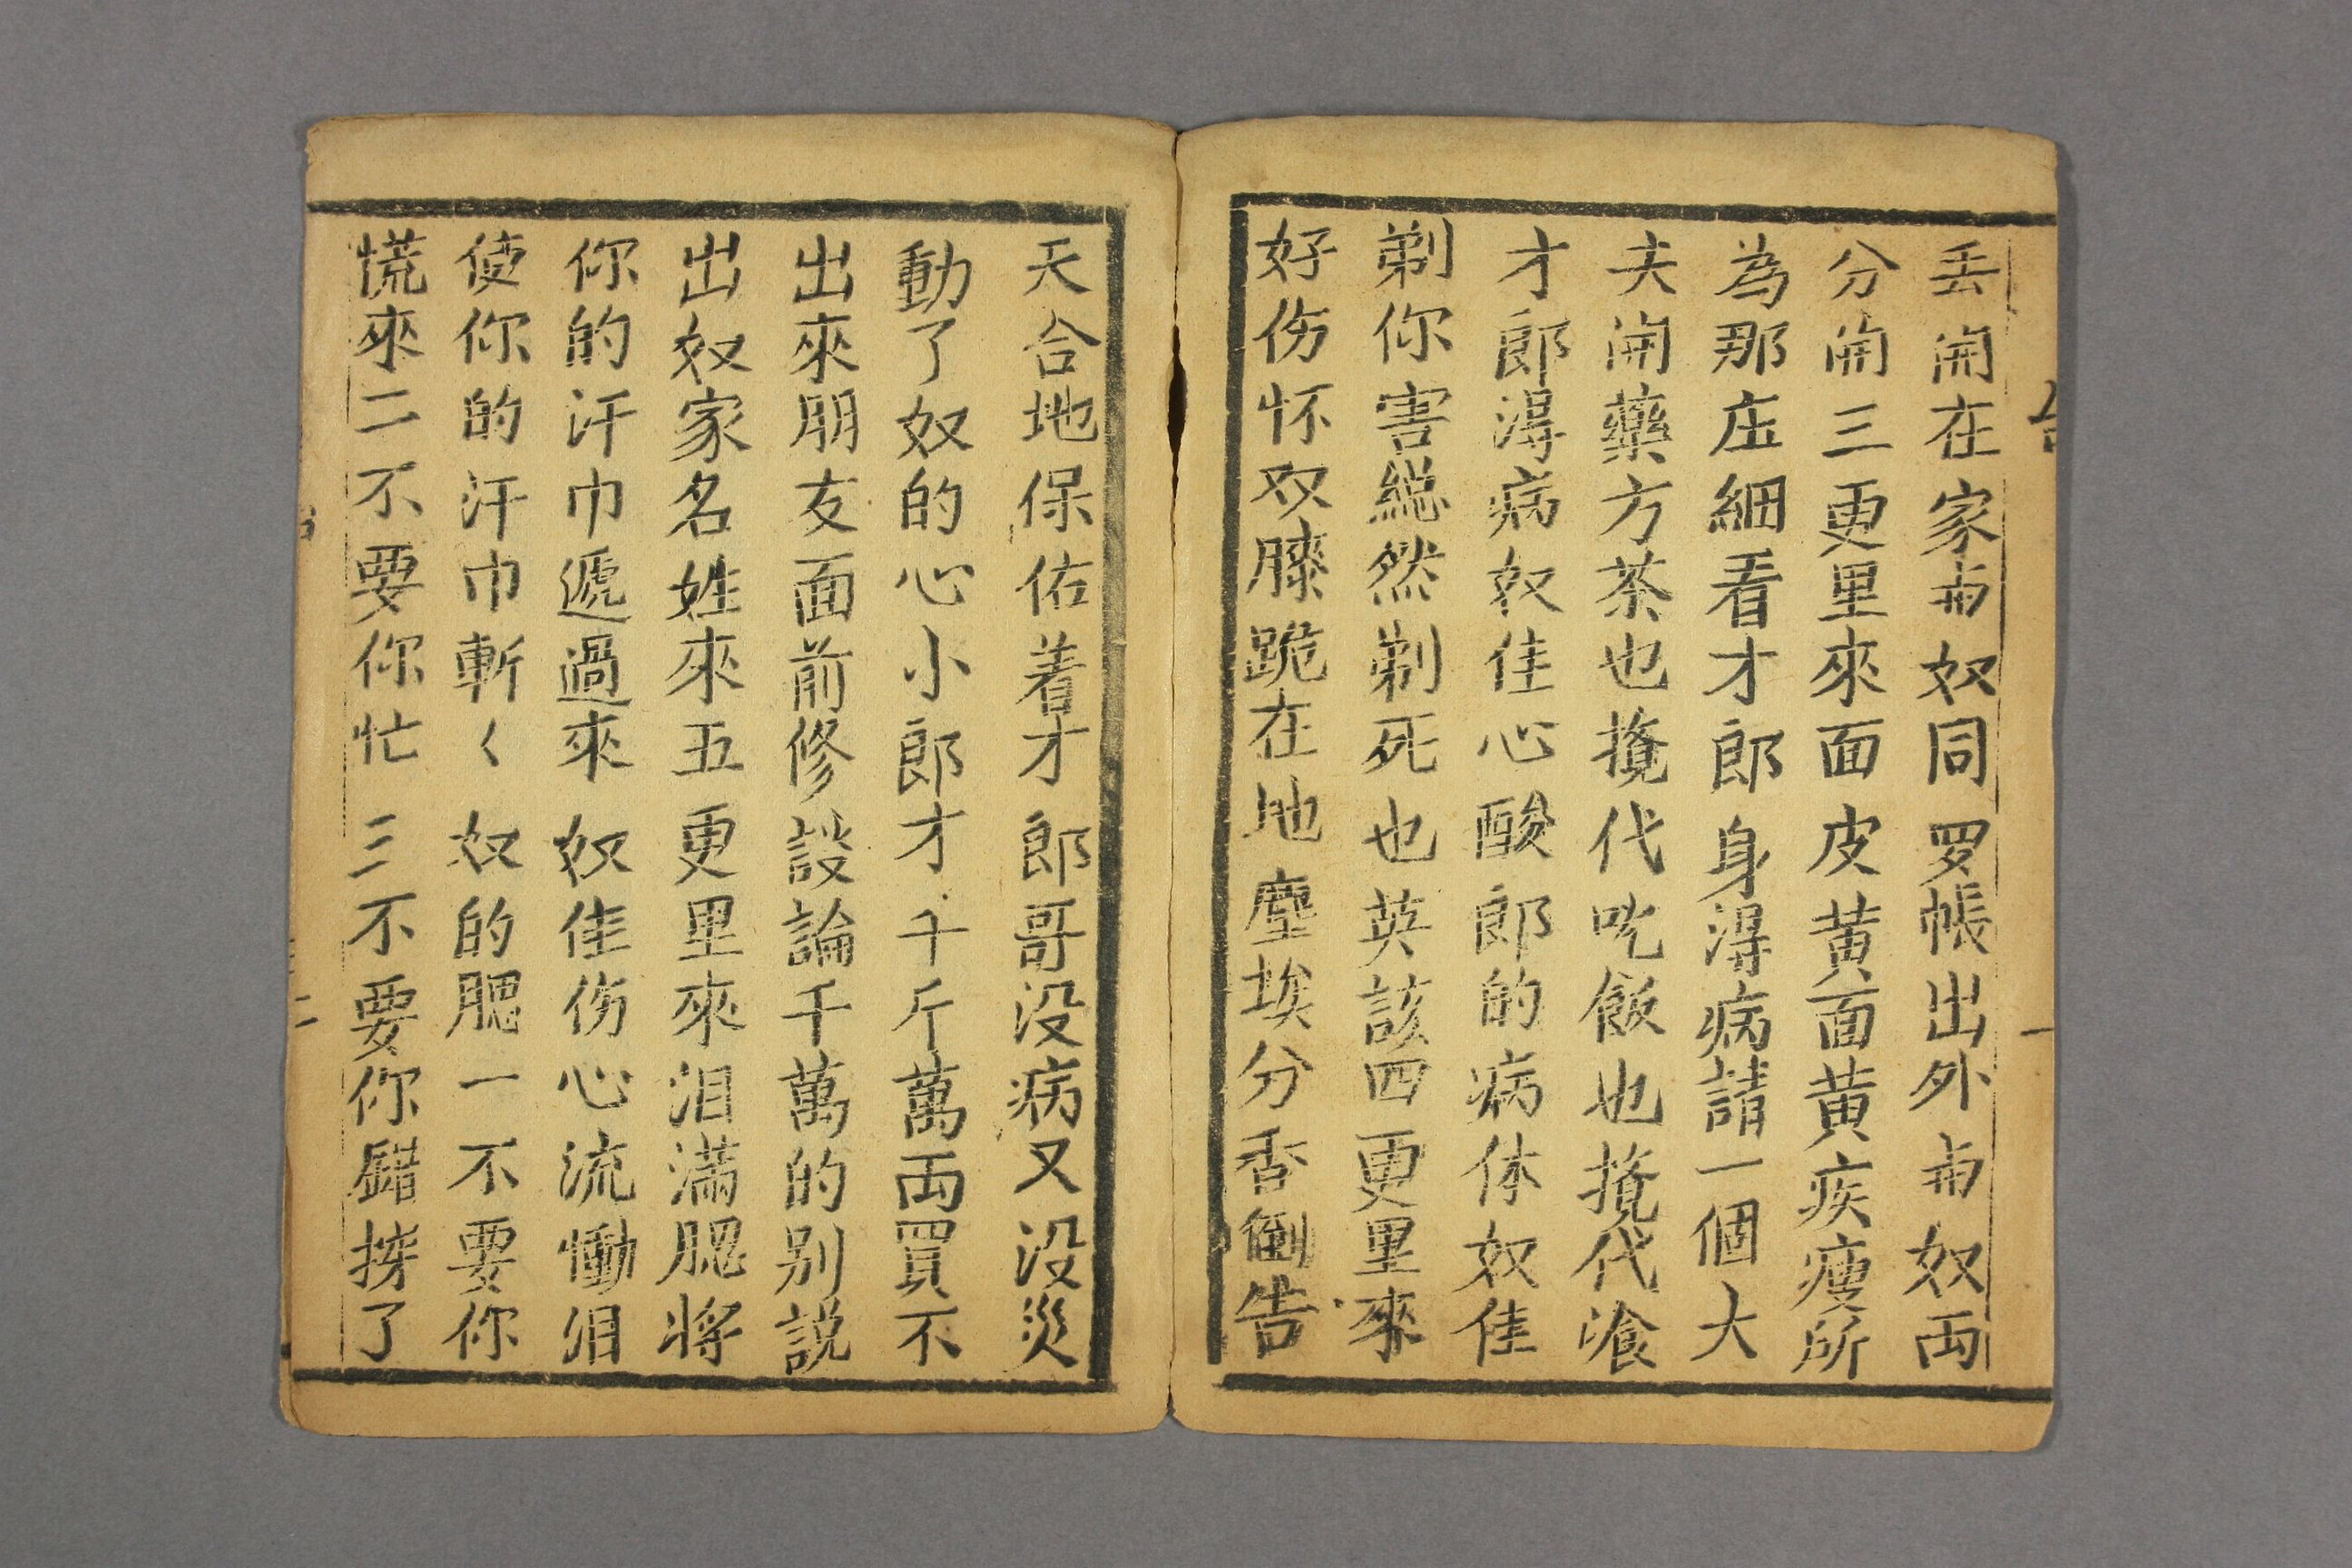 丢開在家甫奴同罗帳出外甫奴両
分開三更里來面皮黄面黄疾瘦所
為那庄細看才郎身淂病請一個大
夫開藥方茶也攬代吃飯也攬代飡
才郎淂病奴佳心酸郎的病休奴佳
剃你害総然剃死也英該四更里來
好伤怀双膝跪在地塵埃分香倒告
天合地保佑着才郎哥没病又没災
動了奴的心小郎才千斤萬両買不
出來朋友面前修設論千萬的别説
出奴家名姓來五更里來泪满腮将
你的汗巾遞過來奴佳伤心流慟泪
使你的汗巾斬く奴的腮一不要你
慌來二不要你忙三不要你錯挷了